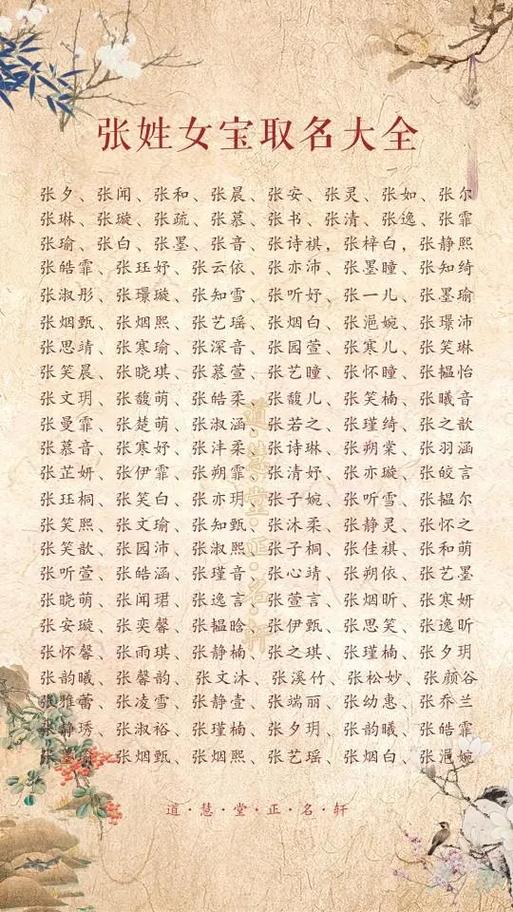 张姓女宝取名大全
张夕、张闻、张和、张晨、张安、张灵、张如、张尔
张琳、张璇、张疏、张慕、张书、张清、张逸、张霏
张瑜、张白、张墨、张音、张诗祺，张梓白，张静熙
张皓霏、张珏妤、张云依、张亦沛、张墨瞳、张知绮
张淑彤、张璟璇、张知雪、张听妤、张一儿、张墨瑜
张烟甄、张烟熙、张艺瑶、张烟白、张滟婉、张璟沛
张思靖、张寒瑜、张深音、张园萱、张寒儿、张笑琳
张笑晨、张晓琪、张慕萱、张艺瞳、张怀瞳、张韫怡
张文玥、张馥萌、张皓柔、张馥儿、张笑楠、张曦音
张曼霏、张楚萌、张淑涵、张若之、张瑾绮、张之歆
张慕音、张寒妤、张沣柔、张诗琳、张朔棠、张羽涵
张芷妍、张伊霏、张朔霏、张清妤、张亦璇、张皎言
张珏桐、张笑白、张亦玥、张子婉、张听雪、张韫尔
张笑熙、张文瑜、张知甄、张沐柔、张静灵、张怀之
张笑歆、张园沛、张淑熙、张子桐、张佳祺、张和萌
张听萱、张皓涵、张瑾音、张心靖、张朔依、张艺墨
张晓萌、张闻珺、张逸言、张萱言、张烟昕、张寒妍
张安璇、张奕馨、张韫晗、张伊甄、张思笑、张逸昕
张怀馨、张雨琪、张静楠、张之琪、张瑾楠、张夕玥
张韵曦、张馨韵、张文沐、张溪竹、张松妙、张颜谷
张雅蕾、张凌雪、张静壹、张端丽、张幼惠、张乔兰
张静琇、张淑裕、张瑾楠、张夕玥、张韵曦、张皓霏
张烟甄、张烟熙、张艺瑶、张烟白、张滟婉
道·慧·堂·正·名·轩